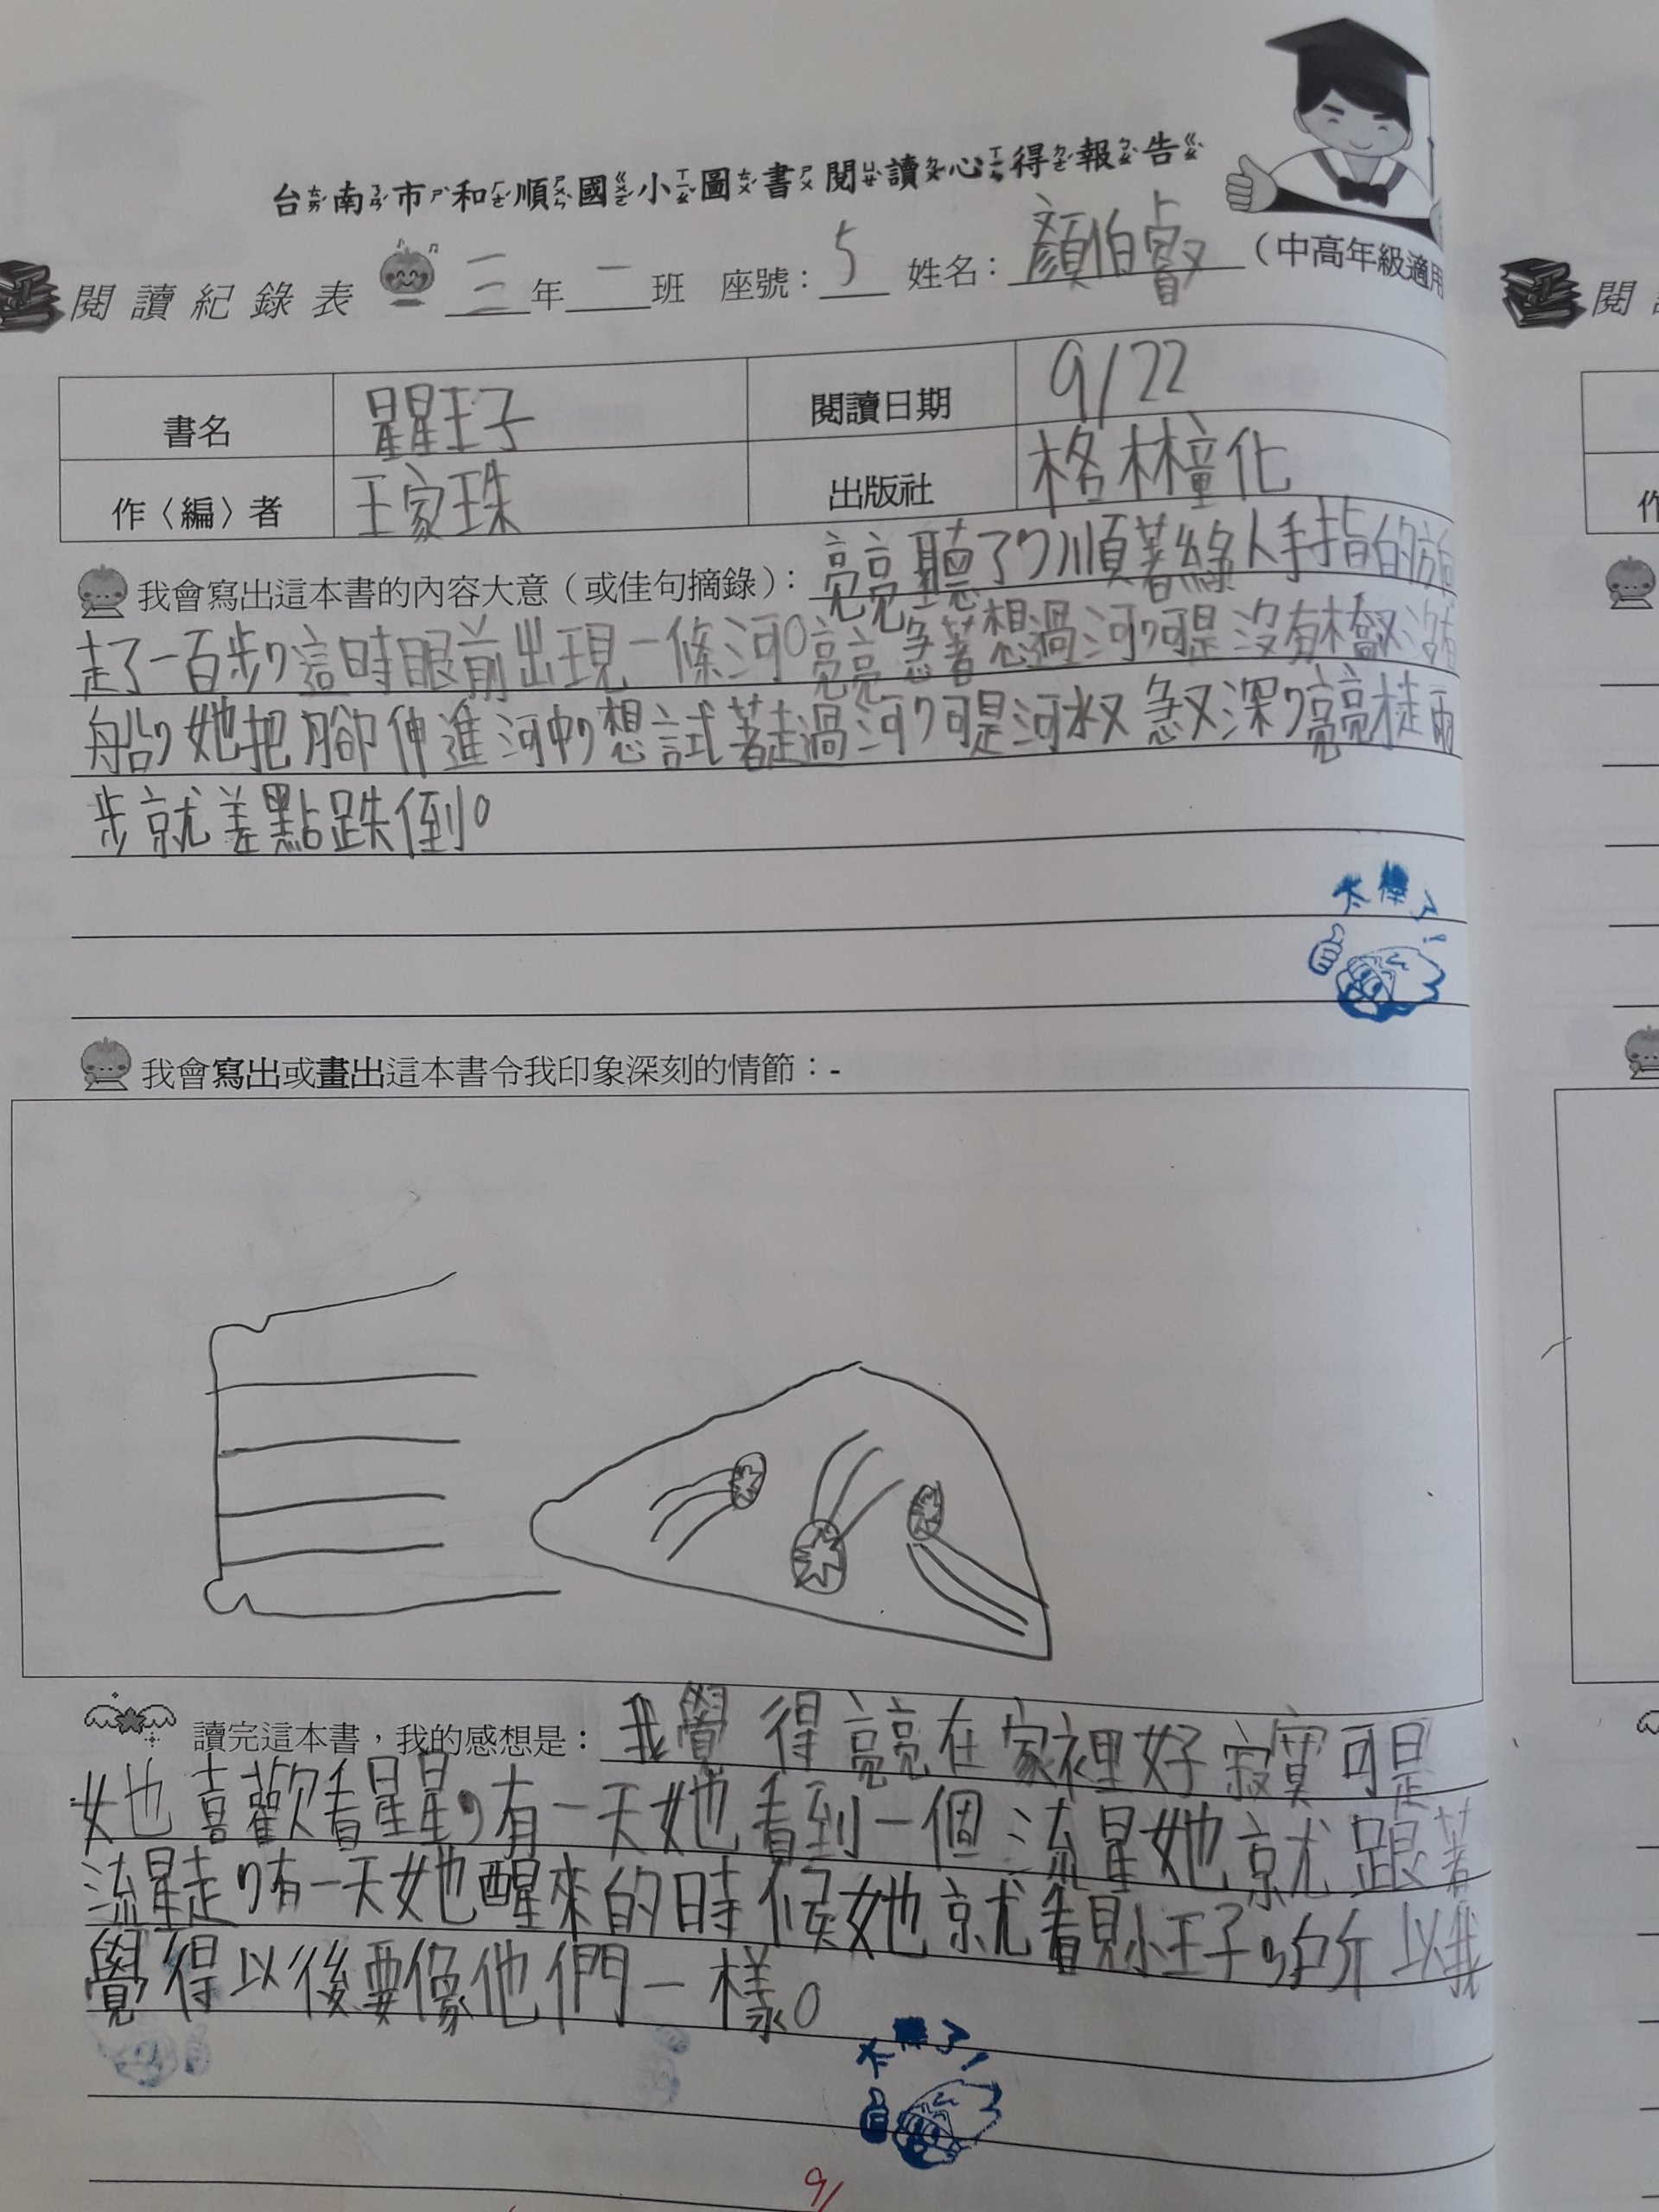 台南市和順國小圖書閱讀心得報告
閱讀紀錄表 三年一班 座號：5 姓名：顏伯叡（中高年級適用
書名 星星王子 閱讀日期 9/22
作〈編〉者 王家珠 出版社 格林童化
我會寫出這本書的內容大意（或佳句摘錄）：亮亮聽了，順著綠人手指的方向
走了一百步，這時眼前出現一條河。亮亮急著想過河，可是沒有橋又沒有
船，她把腳伸進河中，想試著走過河，可是河水又急又深，亮亮才走兩
步就差點跌倒。
太棒了！
我會寫出或畫出這本書令我印象深刻的情節：-
讀完這本書，我的感想是：我覺得亮亮在家裡好寂寞可是
她喜歡看星星，有一天她看到一個流星她就跟著
流星走，有一天她醒來的時候她就看見小王子，所以我
覺得以後要像他們一樣。
太棒了！
9/
閱